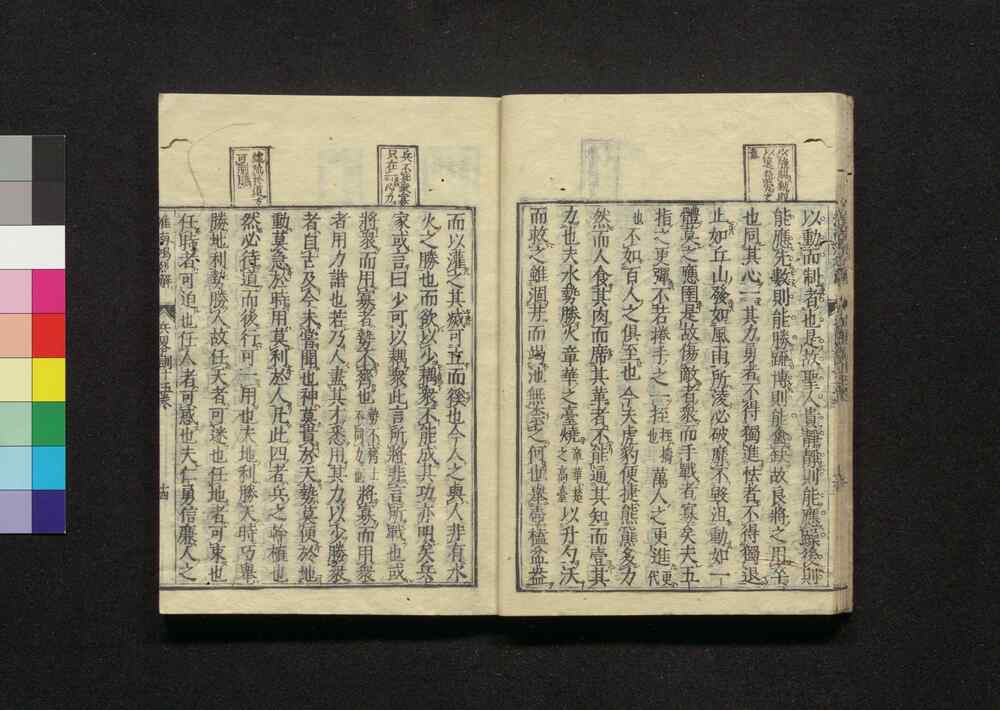 以動而制者也是故聖人貴靜靜則能應躁後則
能應先數則能勝疏博則能禽缺故良將之用卒
也同其心一其力勇者不得獨進怯者不得獨退
止如丘山發如風雨所淩必破靡不毀沮動如一
體莫之應圉是故傷敵者衆而手戰者寡矣夫五
指之更彈不若捲手之一挃挃擣也萬人之更進更代
也不如百人之俱至也今夫虎豹便捷熊羆多力
然而人食其肉而席其革者不能通其知而壹其
力也夫水勢勝火章華之臺燒章華楚之高臺以升勺沃
而救之雖涸井而竭池無奈之何也舉壺榼盆盎
而以灌之其滅可立而待也今人之與人非有水
火之勝也而欲以少耦衆不能成其功亦明矣兵
家或言曰少可以耦衆此言所將非言所戰也或
將衆而用寡者勢不齊也勢不齊士不同力也將寡而用衆
者用力諧也若乃人盡其才悉用其力以少勝衆
者自古及今未嘗聞也神莫貴於天勢莫便於地
動莫急於時用莫利於人凡此四者兵之幹植也
然必待道而後行可一用也夫地利勝天時巧舉
勝地利勢勝人故任天者可迷也任地者可束也
任時者可迫也任人者可惑也夫仁勇信廉人之
兵略訓